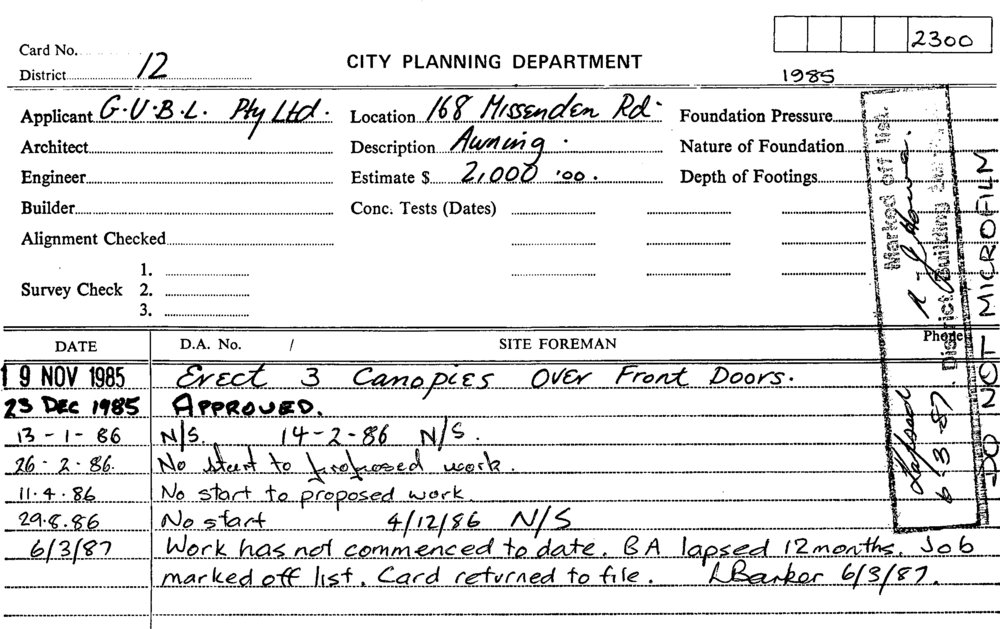 2300
Card No.
District 12
CITY PLANNING DEPARTMENT
1985
Applicant G.U.B.L. Pty Ltd.
Location 168 Missenden Rd.
Foundation Pressure
Architect
Description Awning.
Nature of Foundation
Engineer
Estimate $ 2,000.00.
Depth of Footings
Builder
Conc. Tests (Dates)
Alignment Checked
1.
Survey Check 2.
3.
DATE D.A. No. / SITE FOREMAN Phone
19 NOV 1985 Erect 3 Canopies Over Front Doors.
23 DEC 1985 APPROVED.
13-1-86 N/S. 14-2-86 N/S.
26-2-86. No start to proposed work.
11.4.86 No start to proposed work
29.8.86 No start 4/12/86 N/S
6/3/87 Work has not commenced to date. BA lapsed 12 months. Job
marked off list. Card returned to file. LBarker 6/3/87.
Marked off list.
District Building
Lapsed
6-3-87.
DO NOT MICROFILM